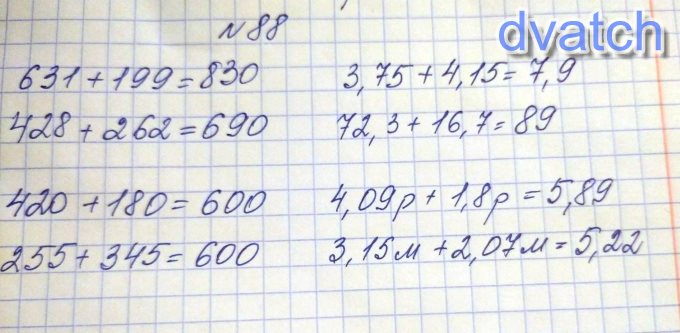 №88
dvatch
631+199=830
3,75+4,15=7,9
428+262=690
72,3+16,7=89
420+180=600
4,09р+1,8р=5,89
255+345=600
3,15м+2,07м=5,22